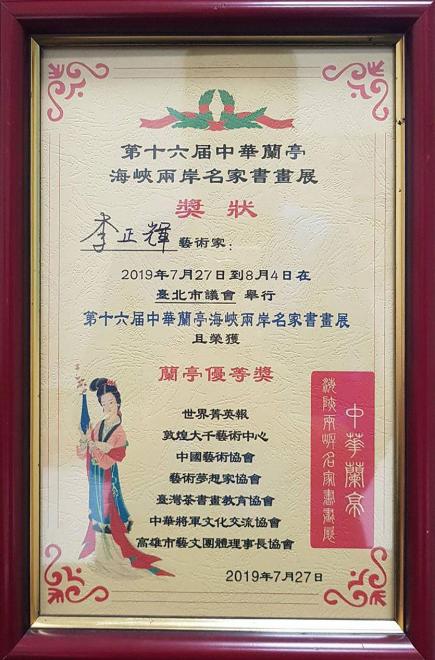 第十六届中華蘭亭
海峽兩岸名家書畫展
獎狀
李正輝 藝術家：
2019年7月27日到8月4日在
臺北市議會 舉行
第十六届中華蘭亭海峽兩岸名家書畫展
且榮獲
蘭亭優等獎
世界菁英報
敦煌大千藝術中心
中國藝術協會
藝術夢想家協會
臺灣茶書畫教育協會
中華將軍文化交流協會
高雄市藝文團體理事長協會
2019年7月27日
中華蘭亭
海峽兩岸名家書畫展